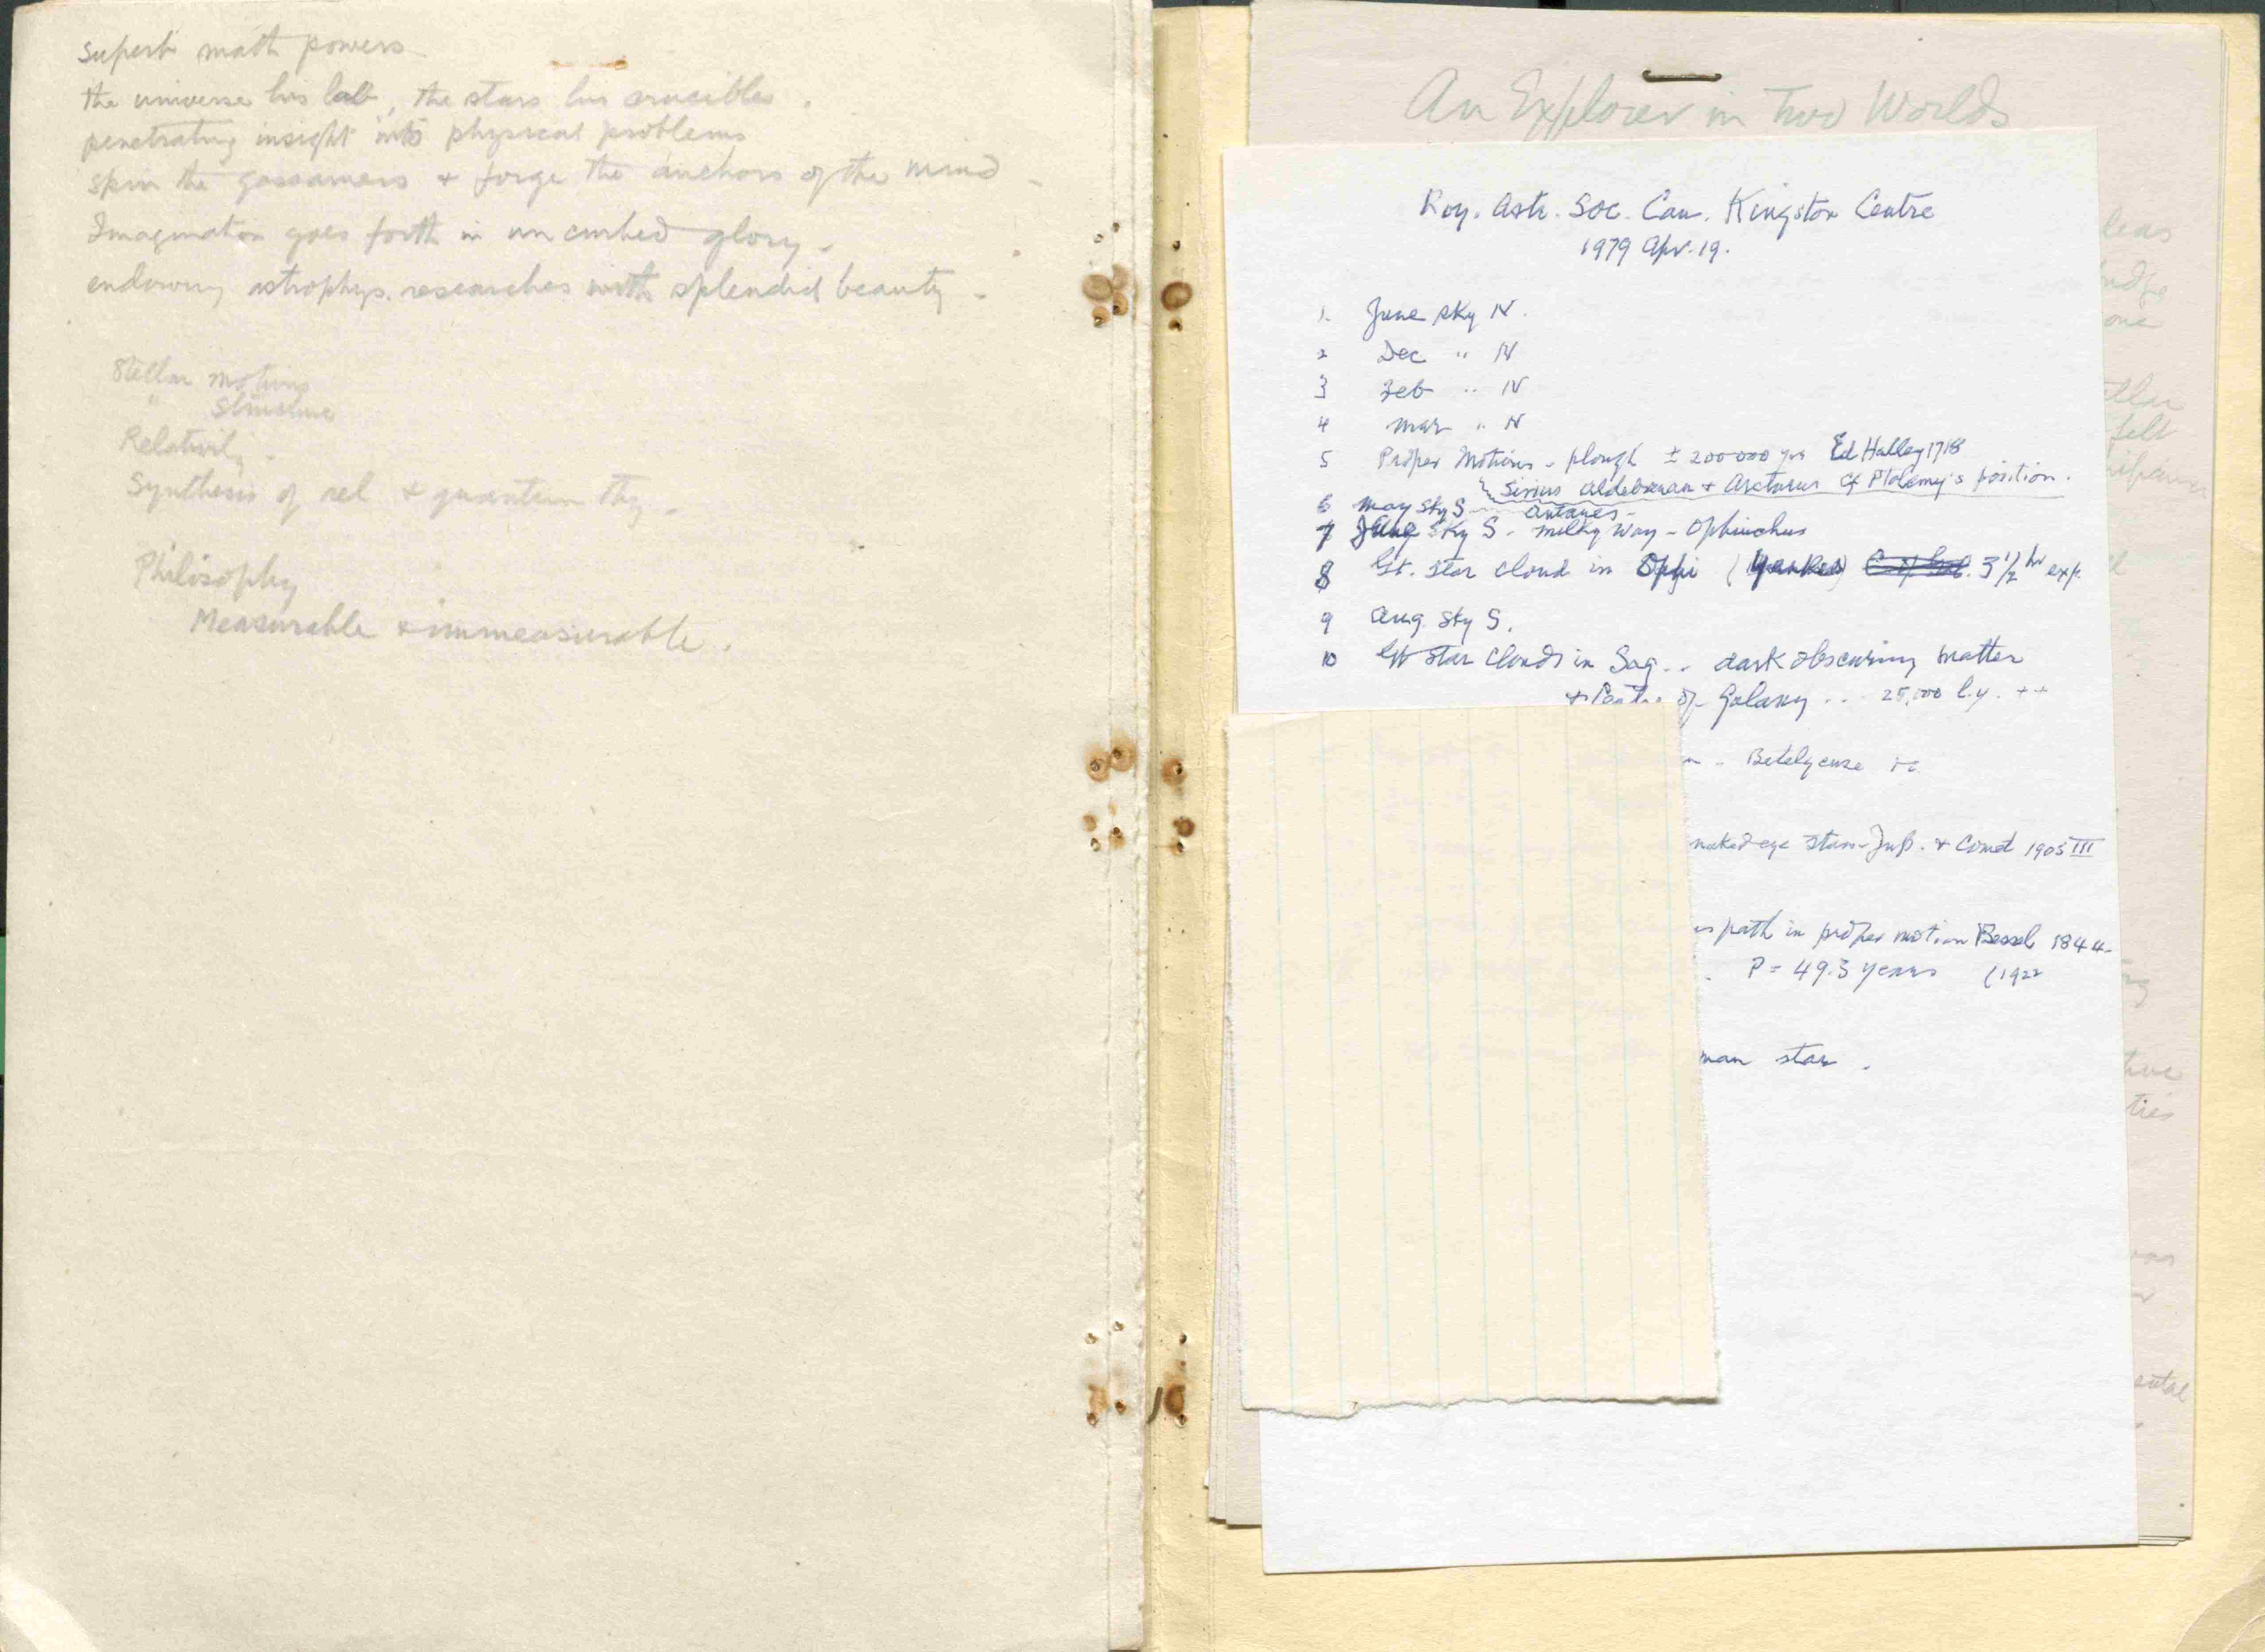 superb math powers
the universe his lab, the stars his crucibles.
penetrating insight into physical problems
spin the gossamers + forge the anchors of the mind -
Imagination goes forth in uncurbed glory -
endowing astrophys. researches with splendid beauty -
Stellar motions
" Structure
Relativity -
Synthesis of rel + quantum thy -
Philosophy
Measurable + immeasurable.
An Explorer in Two Worlds
Roy. Astr. Soc. Can. Kingston Centre
1979 Apr. 19.
1. June sky N.
2 Dec " N
3 Feb " N
4 Mar " N
5 Proper Motions - plough ± 200000 yrs Ed Halley 1718
Sirius Aldebaran + Arcturus cf Ptolemy's position.
6 May Sky S - Antares -
7 Sky S - Milky Way - Ophiuchus
8 Gt. star cloud in Ophi (Yerkes) 3 1/2 hr exp.
9 Aug. Sky S.
10 Gt star clouds in Sag.. dark obscuring matter
+ Centre of Galaxy .. 25,000 l.y. ++
Betelgeuse
naked eye stars - Jup. + Comet 1905 III
path in proper motion Bessel 1844-
P = 49.3 years (1922
man star.
leas
udge
one
felt
ties
ental